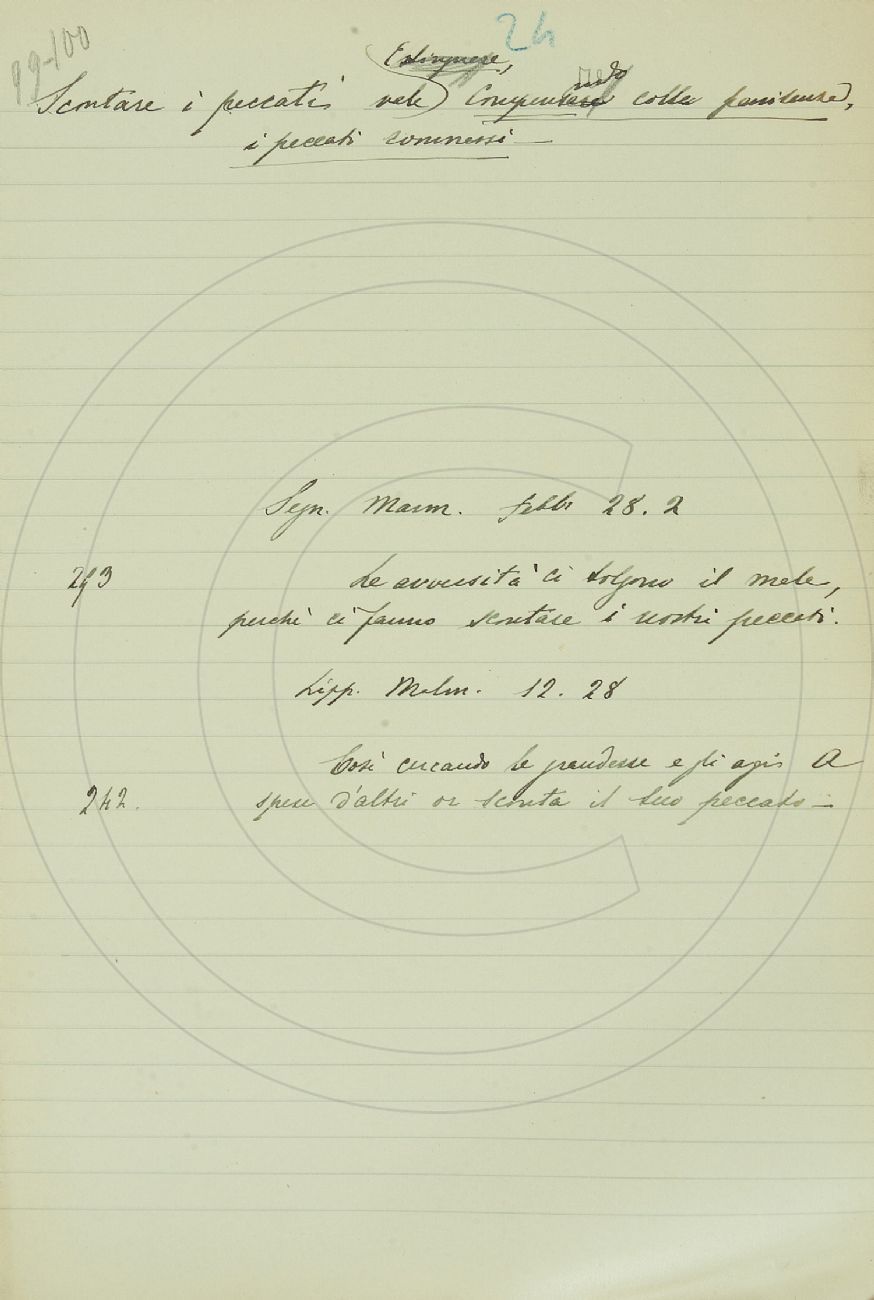 99-100
24
Estinguere,
ando
Scontare i peccati vale Compensare colla penitenza,
i peccati commessi —
Segn. Mann. Febbr 28. 2
243 Le avversità ci tolgono il male,
perchè ci fanno scontare i nostri peccati.
Lipp. Malm. 12. 28
Così cercando le grandezze e gli agi A
242. spese d'altri or sconta il suo peccato —